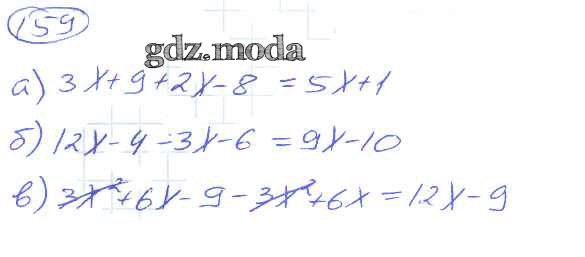 159
gdz.moda
а) 3x+9+2x-8 = 5x+1
б) 12x-4-3x-6 = 9x-10
в) 3x²+6x-9-3x²+6x = 12x-9